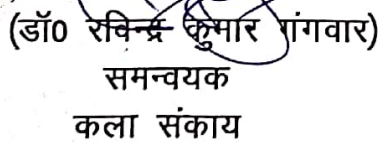 (डॉ0 रविन्द्र कुमार गंगवार)
समन्वयक
कला संकाय